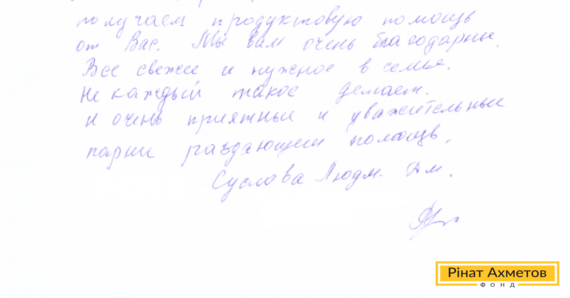 получаем продуктовую помощь
от Вас. Мы вам очень благодарны.
Все свежее и нужное в семье.
Не каждый такое делает.
и очень приятные и уважительные
парни раздающии помощь.
Суслова Людм.
Рінат Ахметов
ФОНД